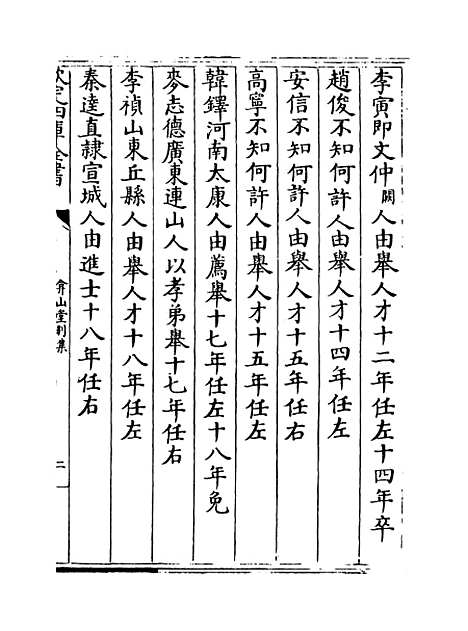 李寅即文仲闕人由舉人才十二年任左十四年卒
趙俊不知何許人由舉人才十四年任左
安信不知何許人由舉人才十五年任右
高寧不知何許人由舉人才十五年任左
韓鐸河南太康人由薦舉十七年任左十八年免
麥志德廣東連山人以孝弟舉十七年任右
李禎山東丘縣人由舉人才十八年任左
秦逵直隷宣城人由進士十八年任右
欽定四庫全書
弇山堂别集
二